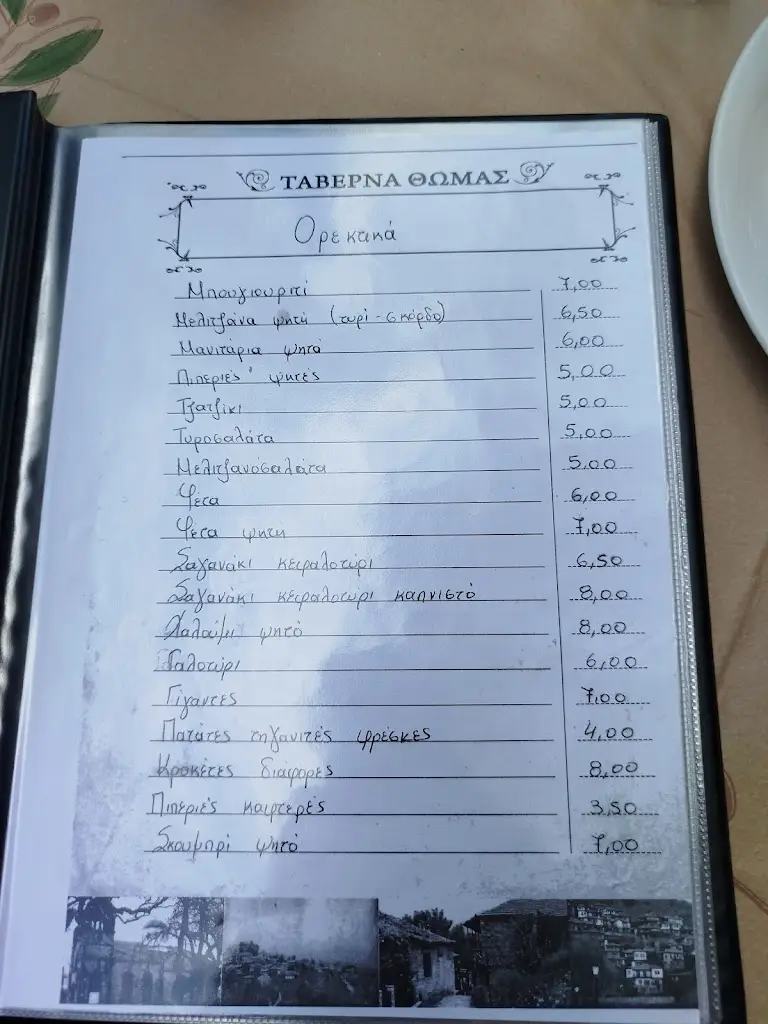 ΤΑΒΕΡΝΑ ΘΩΜΑΣ
Ορεκτικά
Μπουγιουρτί 7,00
Μελιτζάνα ψητή (τυρί - σκόρδο) 6,50
Μανιτάρια ψητά 6,00
Πιπεριές ψητές 5,00
Τζατζίκι 5,00
Τυροσαλάτα 5,00
Μελιτζανοσαλάτα 5,00
Φέτα 6,00
Φέτα ψητή 7,00
Σαγανάκι κεφαλοτύρι 6,50
Σαγανάκι κεφαλοτύρι καπνιστό 8,00
Χαλούμι ψητό 8,00
Γαλοτύρι 6,00
Γίγαντες 7,00
Πατάτες τηγανιτές φρέσκες 4,00
Κροκέτες διάφορες 8,00
Πιπεριές καυτερές 3,50
Σκουμπρί ψητό 7,00